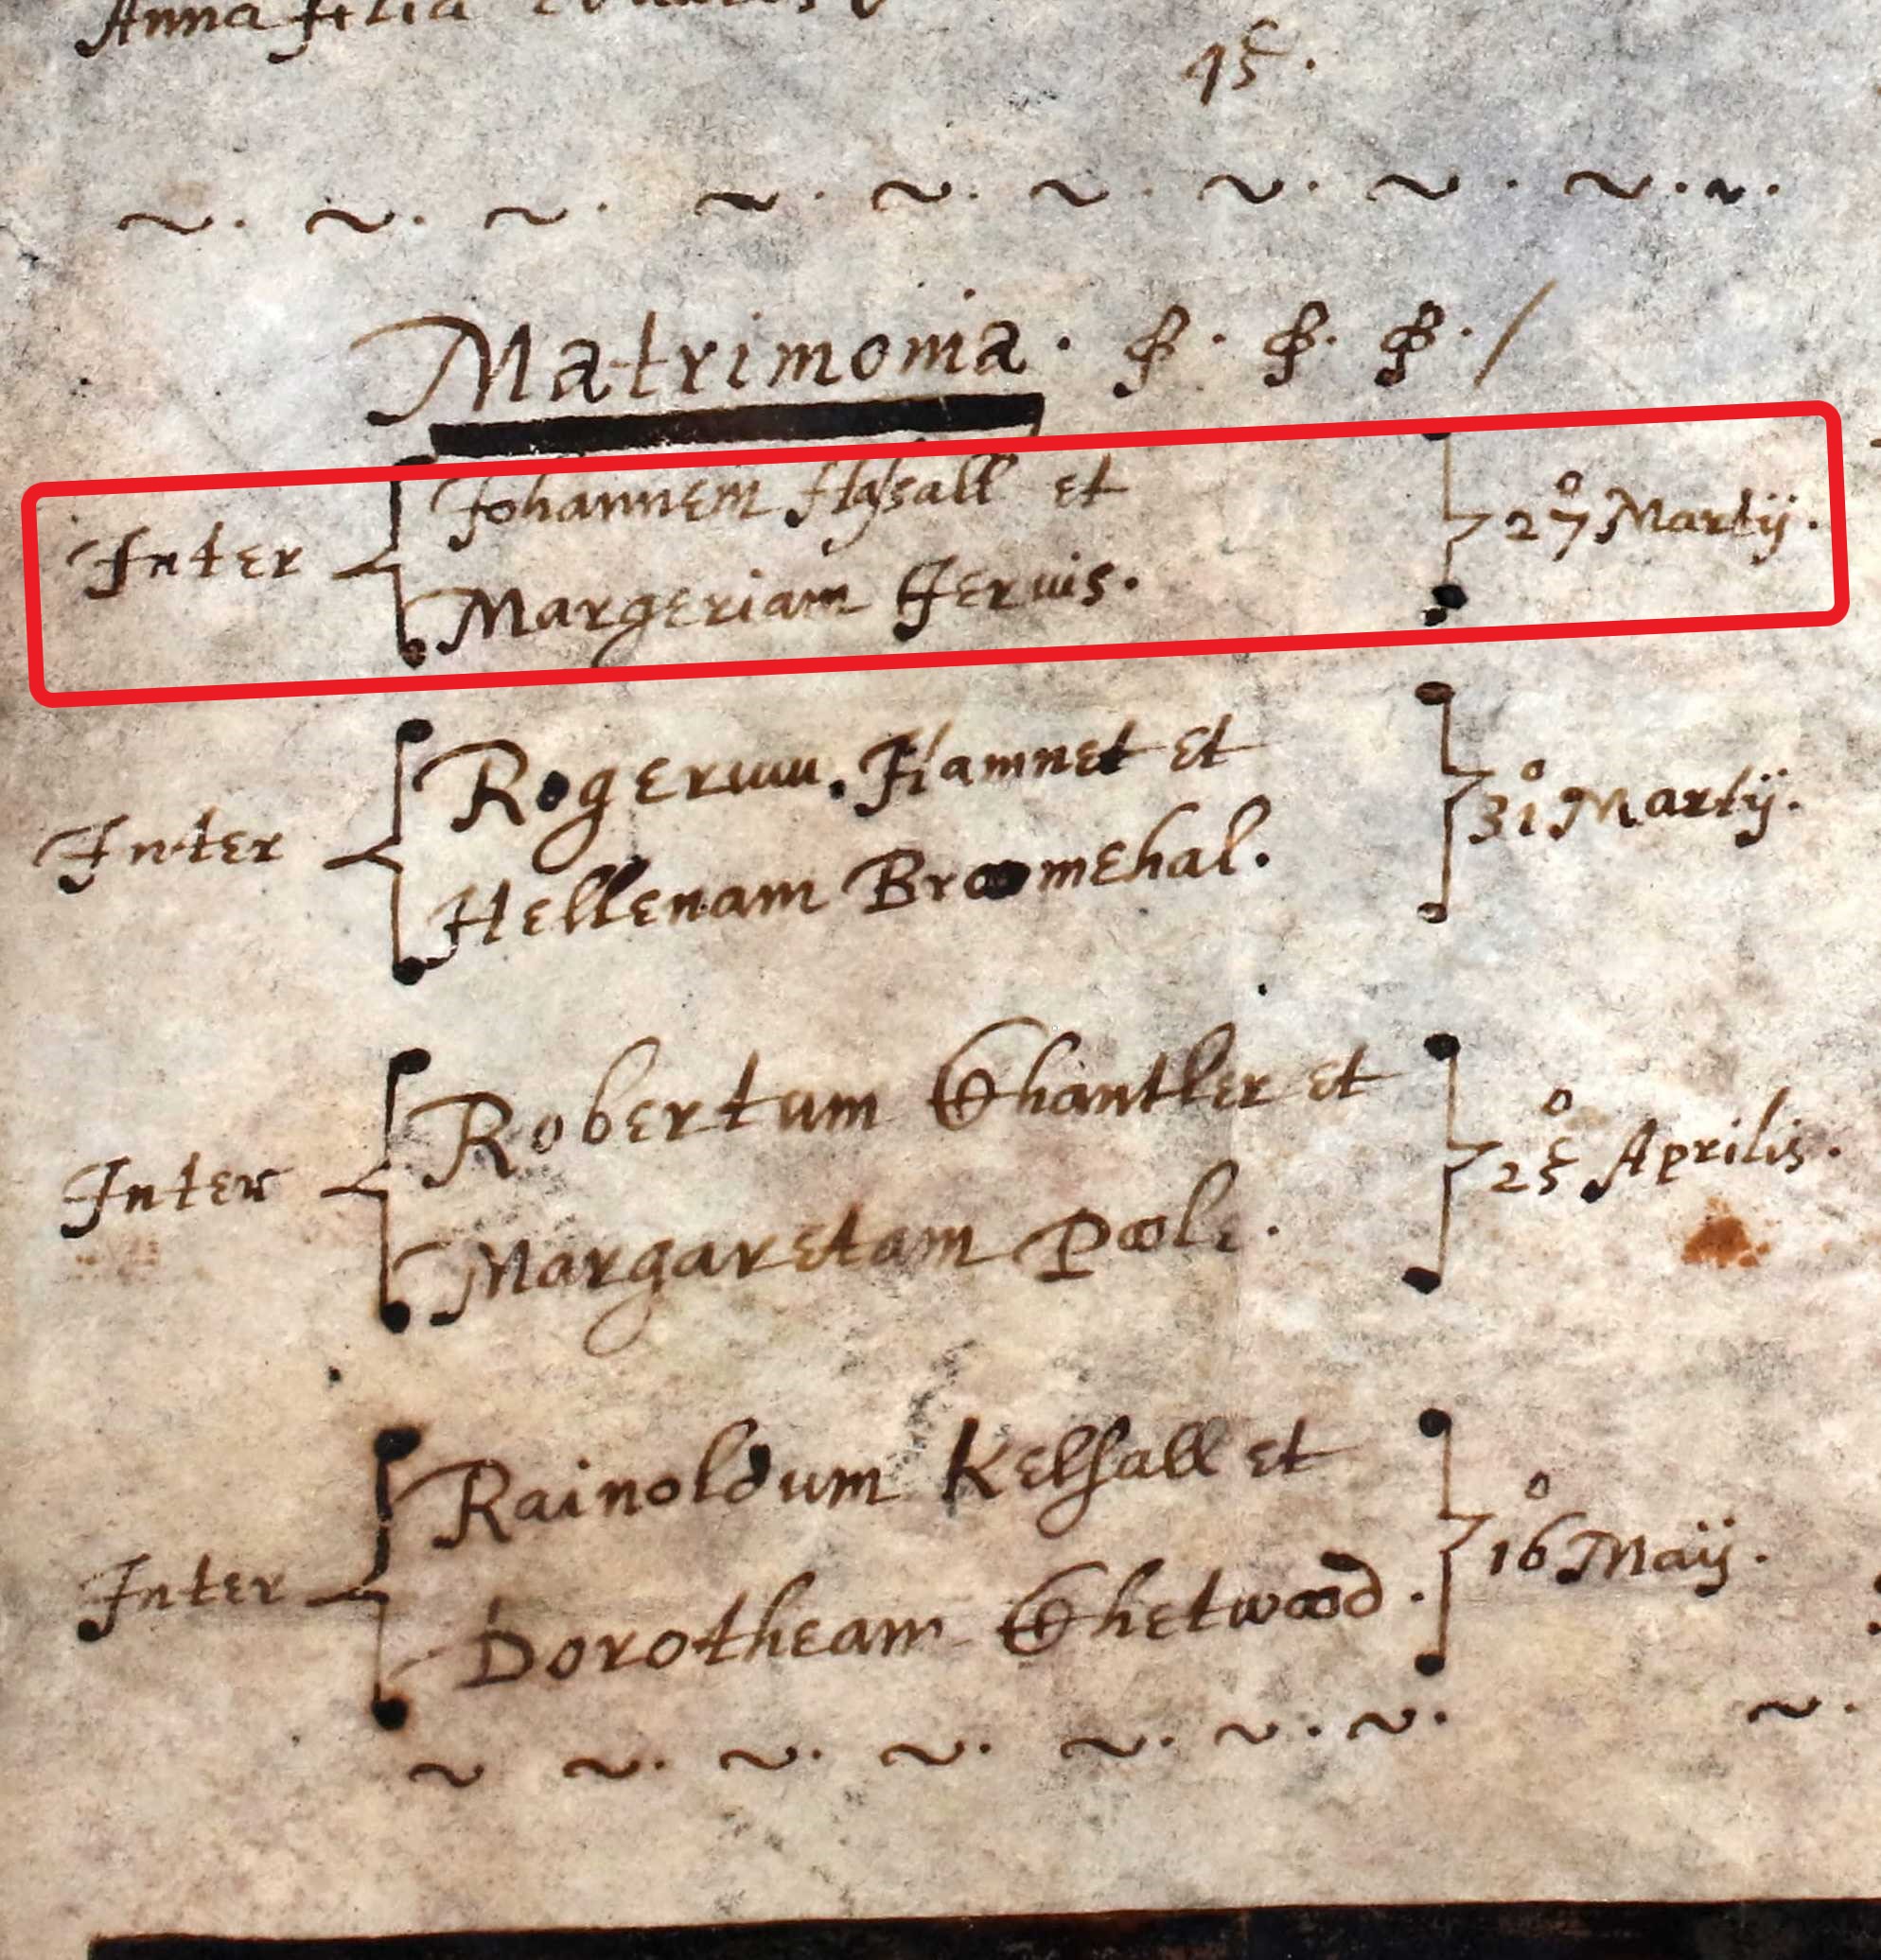 Anna filia
45.
Matrimonia. &. &. &. /
Inter Johannem Hassall et
Margeriam Jervis. 27° Martij.
Inter Rogerum Hamnet et
Hellenam Broomehal. 31° Martij.
Inter Robertum Chantler et
Margaretam Poole. 25° Aprilis.
Inter Rainoldum Kelsall et
Dorotheam Chetwood. 16° Maij.